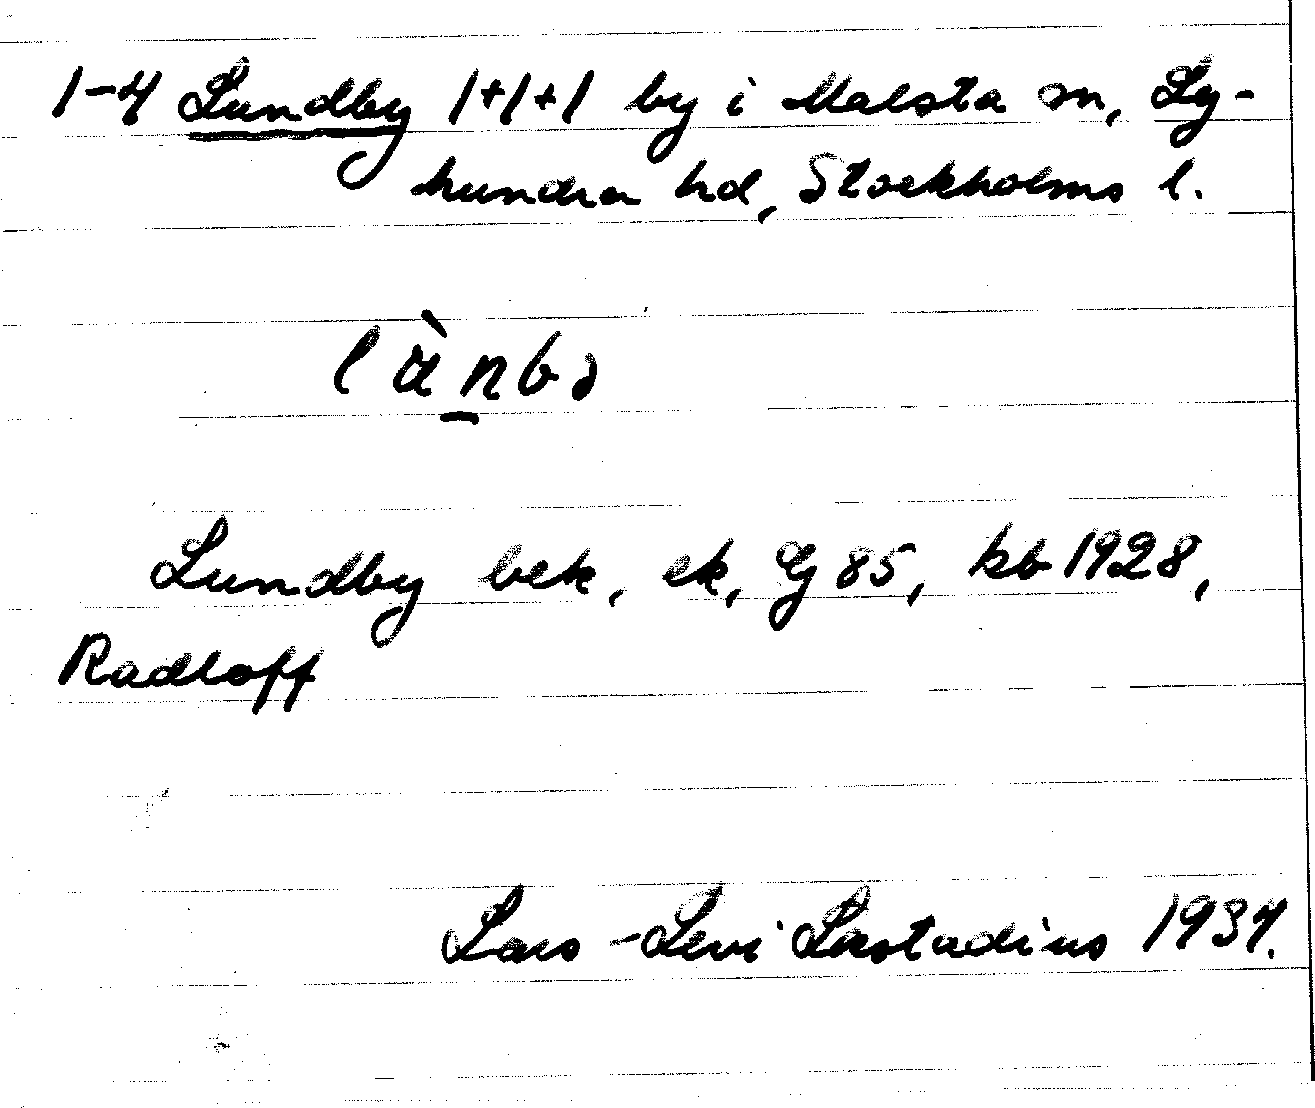 1-4 Lundby 1+1+1 by i Malsta sn, Ly-
hundra hd, Stockholms l.
Lundby bek, ek, G 85, kb 1928,
Radloff
Lars-Levi Læstadius 1937.